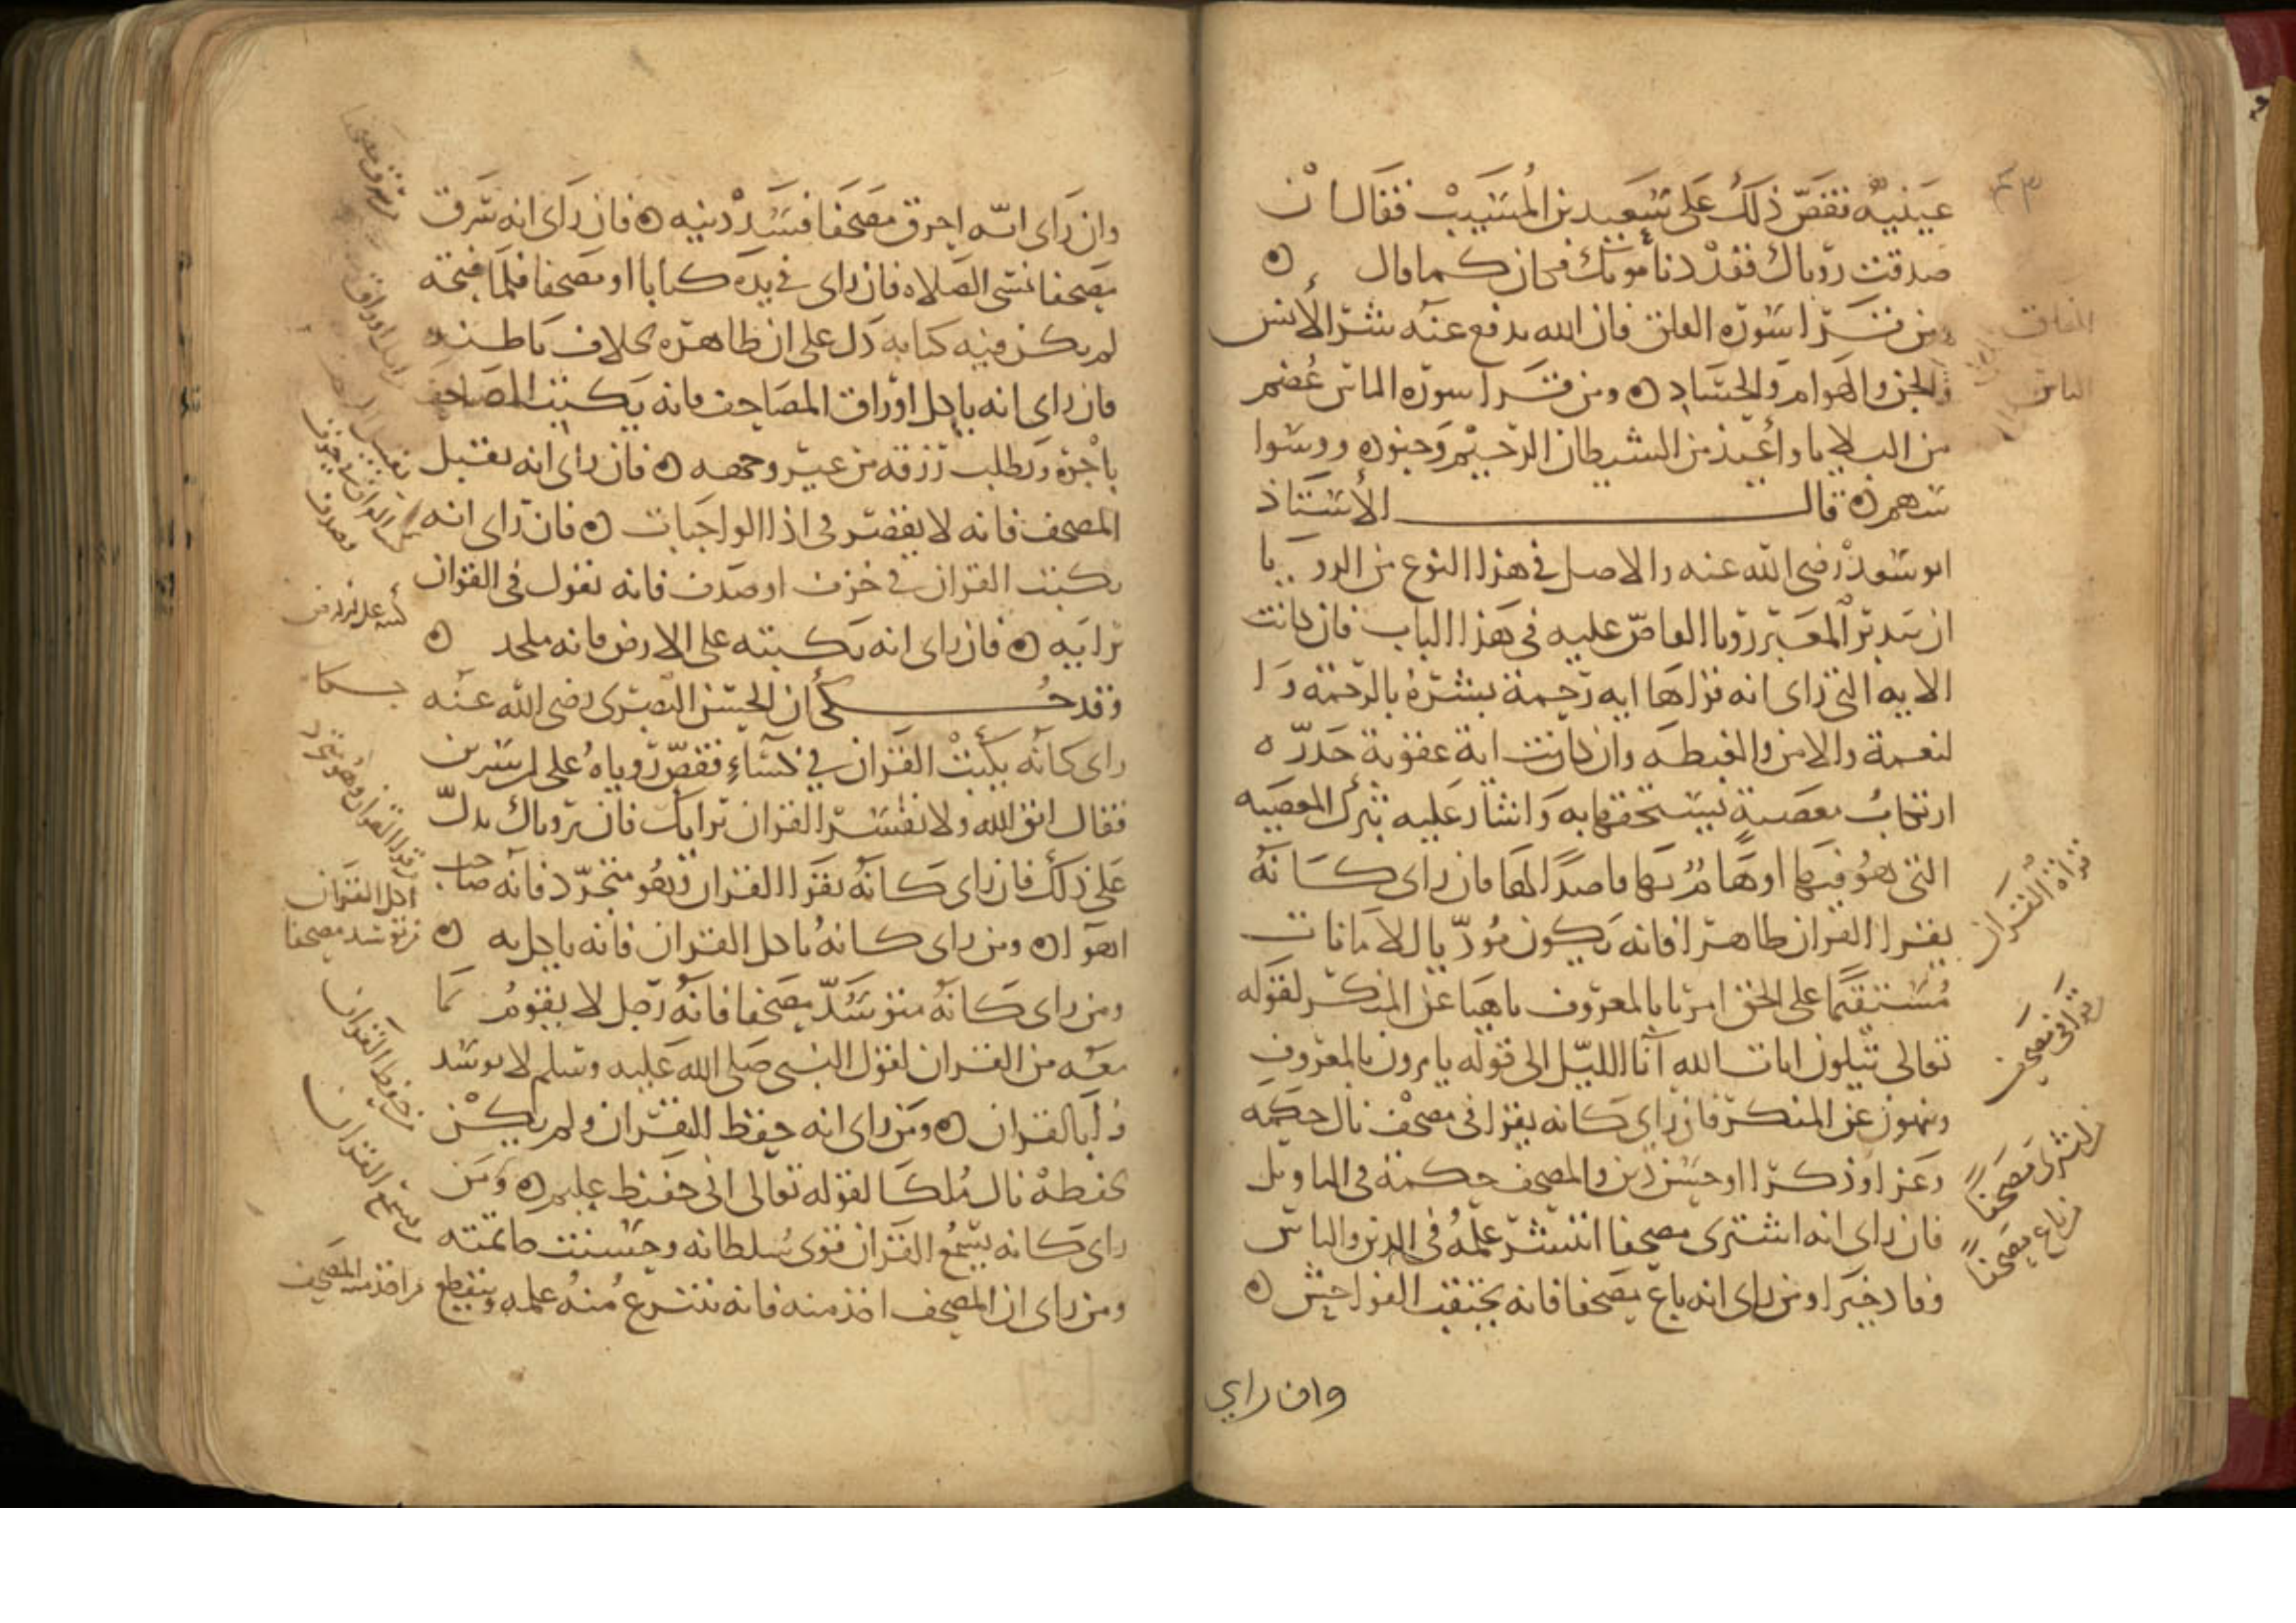 عينيه فقص ذلك على سعيد بن المسيب فقال ان
صدقت روياك فقد دنا موتك فكان كما قال
ومن قرا سورة الفلق فان الله يدفع عنه شر الانس
والجن والهوام والحساد ومن قرا سورة الناس عصم
من البلايا واعيذ من الشيطان الرجيم وجنوده ووسوا
سهم قال الاستاذ
ابو سعد رضى الله عنه والاصل فى هذا النوع من الرويا
ان يتدبر المعبر رويا القاص عليه فى هذا الباب فان كانت
الايه التى راى انه قراها ايه رحمة بشره بالرحمة وا
لنعمة والامن والغبطه وان كانت اية عقوبة حذره
ارتكاب معصية يستحقها به واشار عليه بترك المعصيه
التى هو فيها او هام بها قاصدا لها فان راى كانه
يقرا القران ظاهرا فانه يكون موديا للامانات
مستقيما على الحق امرا بالمعروف ناهيا عن المنكر لقوله
تعالى يتلون ايات الله آنا الليل الى قوله يامرون بالمعروف
وينهون عن المنكر فان راى كانه يقرا فى مصحف نال حكمه
وعزا وذكرا وحسن دين والمصحف حكمة فى التاويل
فان راى انه اشترى مصحفا انتشر علمه فى الدين والناس
وفاد خيرا ومن راى انه باع مصحفا فانه يجتنب الفواحش
وان راي
الفلق
الناس
قراة القران
قرا فى مصحف
اشترى مصحفا
باع مصحفا
وان راى انه احرق مصحفا فسد دينه فان راى انه سرق
مصحفا نسى الصلاه فان راى فى يده كتابا او مصحفا فلما فتحه
لم يكن فيه كتابه دل على ان ظاهره بخلاف باطنه
فان راى انه ياكل اوراق المصاحف فانه يكتب المصاحف
باجرة ويطلب رزقه من غير وجهه فان راى انه يقبل
المصحف فانه لا يقصر فى اذا الواجبات فان راى انه
يكتب القران فى خزف او صدف فانه يقول فى القران
برايه فان راى انه يكتبه على الارض فانه ملحد
وقد حكى ان الحسن البصرى رضى الله عنه
راى كانه يكتب القران فى كساء فقص روياه على ابن سرين
فقال اتق الله ولا تفسر القران برايك فان روياك يدل
على ذلك فان راى كانه يقرا القران وهو متجرد فانه صاحب
اهوا ومن راى كانه ياكل القران فانه ياكل به
ومن راى كانه متوسد مصحفا فانه رجل لا يقوم بما
معه من القران لقول النبى صلى الله عليه وسلم لا توسد
وا بالقران ومن راى انه حفظ القران ولم يكن
يحفظه نال ملكا لقوله تعالى انى حفيظ عليم ومن
راى كانه يستمع القران قوى سلطانه وحسنت خاتمته
ومن راى ان المصحف اخذ منه فانه ينتزع منه علمه وينقطع
اكل القران
من توسد مصحفا
من حفظ القران
من سمع القران
من اخذ منه المصحف